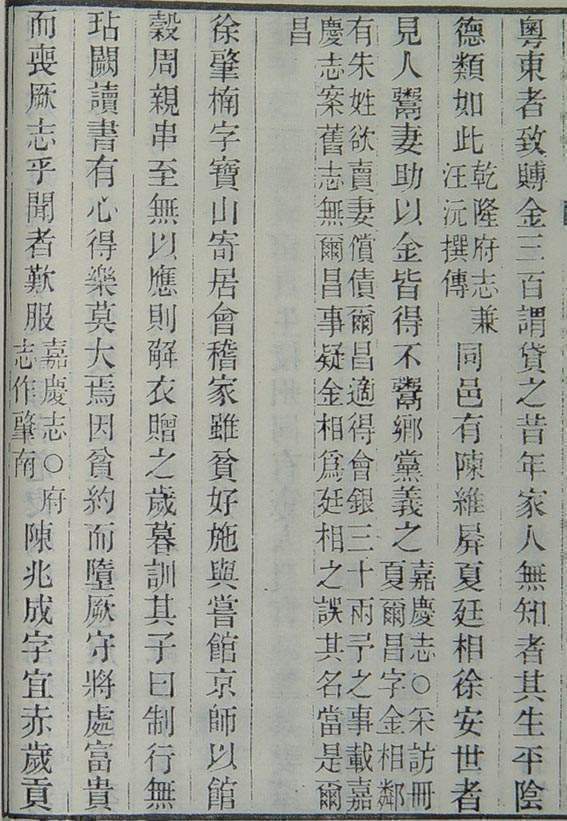 粵東者致賻金三百謂貸之昔年家人無知者其生平陰
德類如此乾隆府志兼汪沅撰傳同邑有陳維屏夏廷相徐安世者
見人鬻妻助以金皆得不鬻鄉黨義之嘉慶志○采訪冊夏爾昌字金相鄰
有朱姓欲賣妻償債爾昌適得會銀三十兩予之事載嘉慶志案舊志無爾昌事疑金相爲廷相之誤其名當是爾
昌
徐肇楠字寶山寄居會稽家雖貧好施與嘗館京師以館
穀周親串至無以應則解衣贈之歲暮訓其子曰制行無
玷闕讀書有心得樂莫大焉因貧約而墮厥守將處富貴
而喪厥志乎聞者歎服嘉慶志○府志作肇南陳兆成字宜赤歲貢